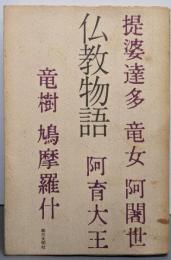 提婆達多 竜女 阿闍世
仏教物語
阿育大王
竜樹 鳩摩羅什
第三文明社